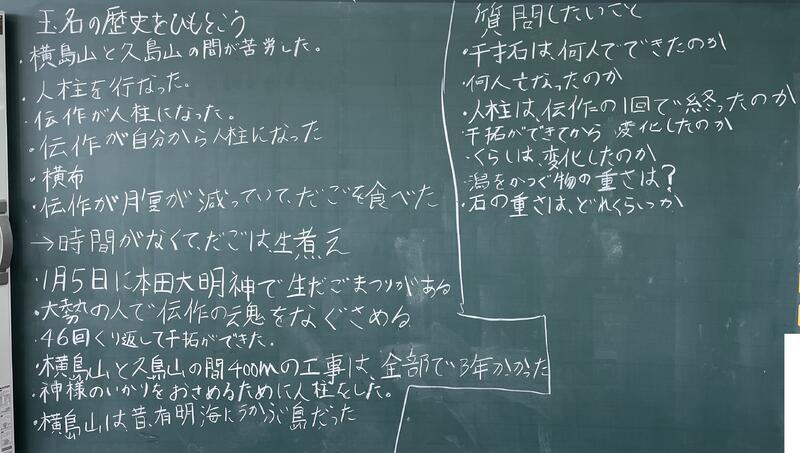 玉名の歴史をひもとこう
・横島山と久島山の間が苦労した。
・人柱を行なった。
・伝作が人柱になった。
・伝作が自分から人柱になった
・横布
・伝作が腹が減っていて、だごを食べた
→時間がなくて、だごは、生煮え
・1月5日に本田大明神で生だごまつりがある
・大勢の人で伝作の魂をなぐさめる
・46回くり返して干拓ができた.
・横島山と久島山の間400mの工事は、全部で3年かかった
・神様のいかりをおさめるために人柱をした。
・横島山は昔、有明海にうかぶ島だった
質問したいこと
・干才石は、何人でできたのか
・何人亡なったのか
・人柱は、伝作の1回で終ったのか
・干拓ができてから変化したのか
・くらしは、変化したのか
・潟をかつぐ物の重さは?
・石の重さは、どれくらいか